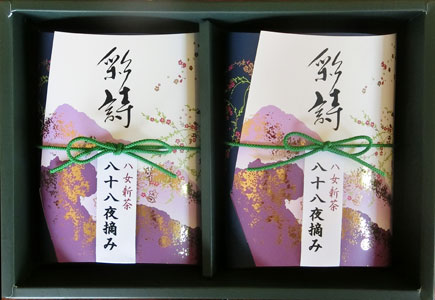 彩詩
八女新茶
八十八夜摘み
彩詩
八女新茶
八十八夜摘み